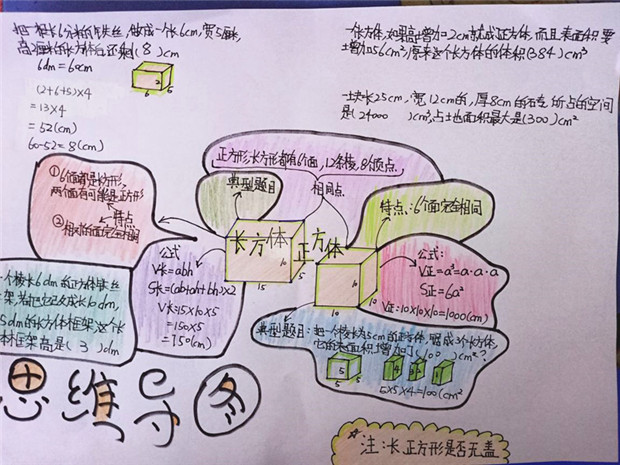 把一根长6分米的铁丝,做成一个长6cm,宽5厘米,
高2厘米的长方体后还剩(8)cm
6dm=60cm
(2+6+5)×4
=13×4
=52(cm)
60-52=8(cm)
2
6
5
一长方体,如果高增加2cm就成正方体,而且表面积要
增加56cm²,原来这个长方体的体积(384)cm³
一块长25cm,宽12cm的,厚8cm的砖所占的空间
是(24000)cm³,占地面积最大是(300)cm²
正方形,长方形都有6个面,12条棱,8个顶点.
相同点.
典型题目
①6个面都是长方形,
两个面有可能是正方形
特点
②相对的面完全相同
特点:6个面完全相同
长方体
正方体
15
10
5
10
10
10
公式
V长=abh
S长=(ab+ah+bh)×2
V长:15×10×5
=150×5
=750(cm)
公式:
V正=a³=a·a·a
S正=6a²
V正:10×10×10=1000(cm)
一个棱长6dm的正方体铁丝
架,若把它改成长10dm,
5dm的长方体框架,这个长
体框架高是(3)dm
典型题目:把一个棱长为5cm的正方体,锯成3个长方体,
它的表面积增加了(100)cm²?
5
5
5×5×4=100(cm²
思维导图
☆注:长正方形是否无盖